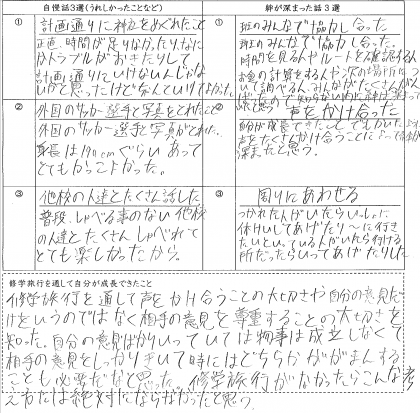 自慢話3選(うれしかったことなど)
①
計画通りに神社をめぐれたこと
正直、時間が足りなかったり、なに
かトラブルがおきたりして
計画通りにいけないんじゃな
いかと思ったけどなんとかいけてよかった。
②
外国のサッカー選手と写真をとれたこと
外国のサッカー選手と写真がとれた。
身長は190cmぐらいあって
とてもかっこよかった。
③
他校の人達とたくさん話した
普段、しゃべる事のない他校
の人達とたくさんしゃべれて
とても楽しかったから。
絆が深まった話3選
①
班のみんなで協力し合った
班のみんなで協力し合った。
時間を見る人やルートを確認する人
お金の計算をする人や次の場所につ
いて調べる人、みんながたくさん
②
声をかけ合った
声をたくさんかけ合うことによって絆が
深まったと思う。
③
周りにあわせる
つかれた人がいたらいっしょに
休けいしてあげたり〜に行き
たいといっている人がいたら行ける
所だったらいってあげたりした
修学旅行を通して自分が成長できたこと
修学旅行を通して声をかけ合うことの大切さや自分の意見だ
けをいうのではなく相手の意見を尊重することの大切さを
知った。自分の意見ばかりいっていては物事は成立しなくて
相手の意見をしっかりきいて時にはどちらかががまんする
ことも必要だなと思った。修学旅行がなかったらこんな考
え方には絶対にならなかったと思う。